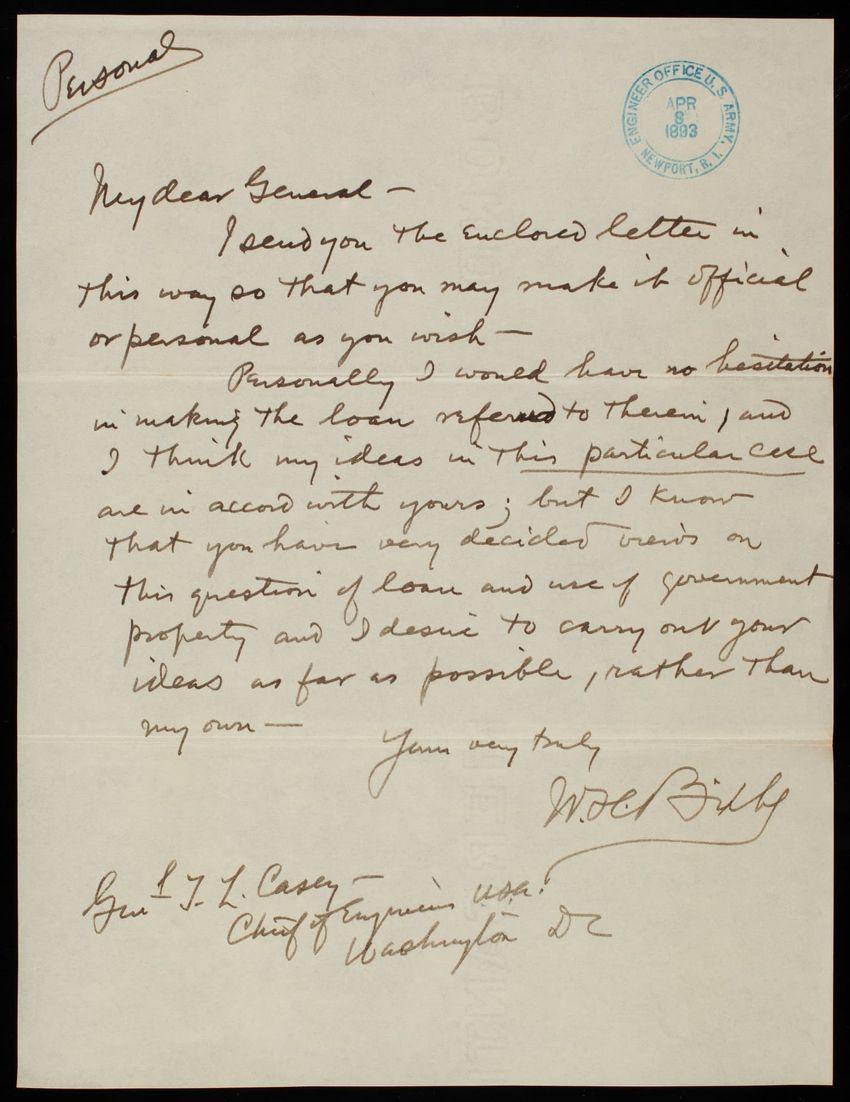 Personal
ENGINEER OFFICE U. S. ARMY,
APR
8
1893
NEWPORT, R. I.
My dear General —
I send you the enclosed letter in
this way so that you may make it official
or personal as you wish —
Personally I would have no hesitation
in making the loan referred to therein, and
I think my ideas in this particular case
are in accord with yours; but I know
that you have very decided views on
this question of loan and use of government
property and I desire to carry out your
ideas as far as possible, rather than
my own —
Yours very truly
W. H. Bixby
Genl T. L. Casey —
Chief of Engineers U.S.A.
Washington DC